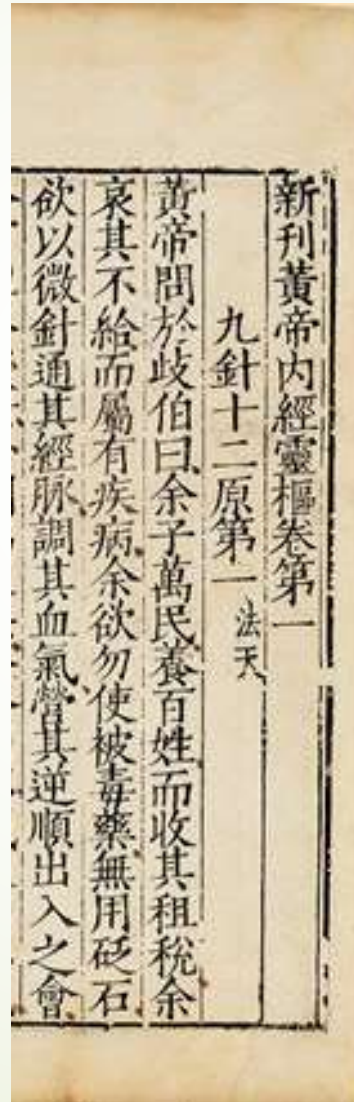 新刊黃帝内經靈樞卷第一
九針十二原第一 法天
黃帝問於歧伯曰余子萬民養百姓而收其租稅余
哀其不給而屬有疾病余欲勿使被毒藥無用砭石
欲以微針通其經脉調其血氣營其逆順出入之會